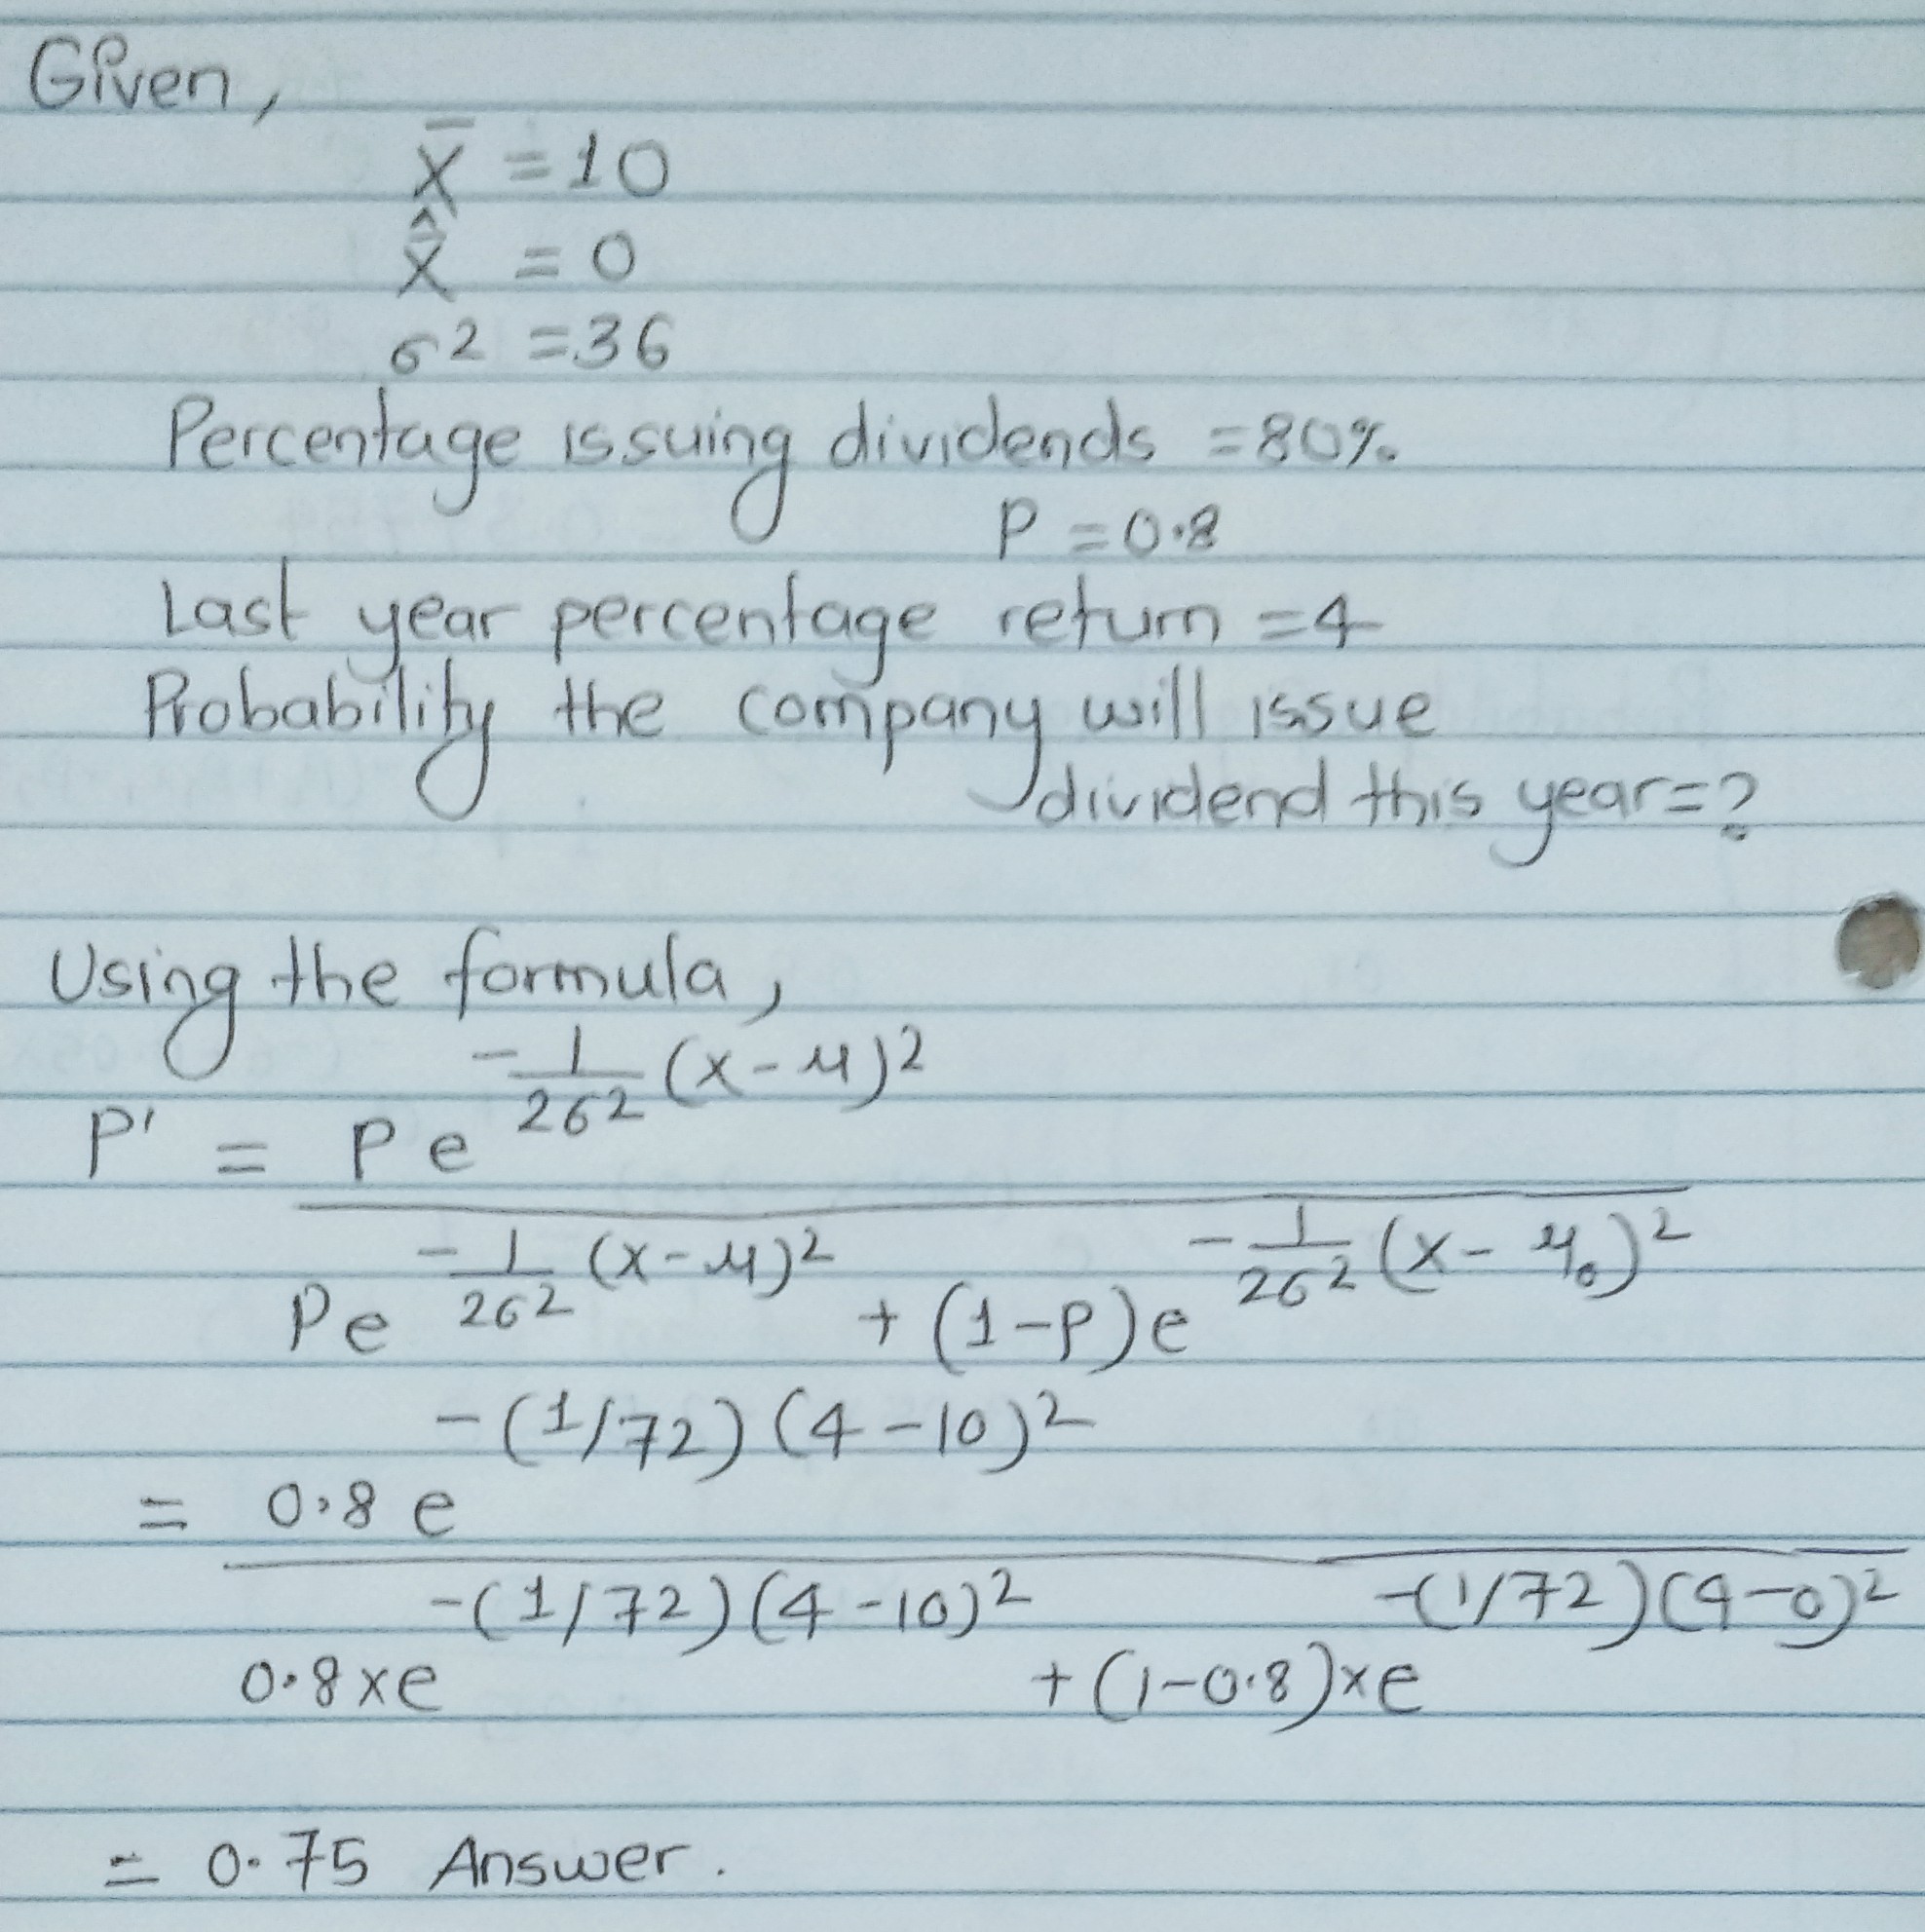 Given,
X̄ = 10
X̄̂ = 0
σ² = 36
Percentage issuing dividends = 80%
P = 0.8
Last year percentage return = 4
Probability the company will issue
dividend this year = ?
Using the formula,
P' = P e^{-1/2σ² (x-μ)²}
/ P e^{-1/2σ² (x-μ)²} + (1-P) e^{-1/2σ² (x-μ₀)²}
= 0.8 e^{-(1/72)(4-10)²}
/ 0.8 × e^{-(1/72)(4-10)²} + (1-0.8) × e^{-(1/72)(4-0)²}
= 0.75 Answer.